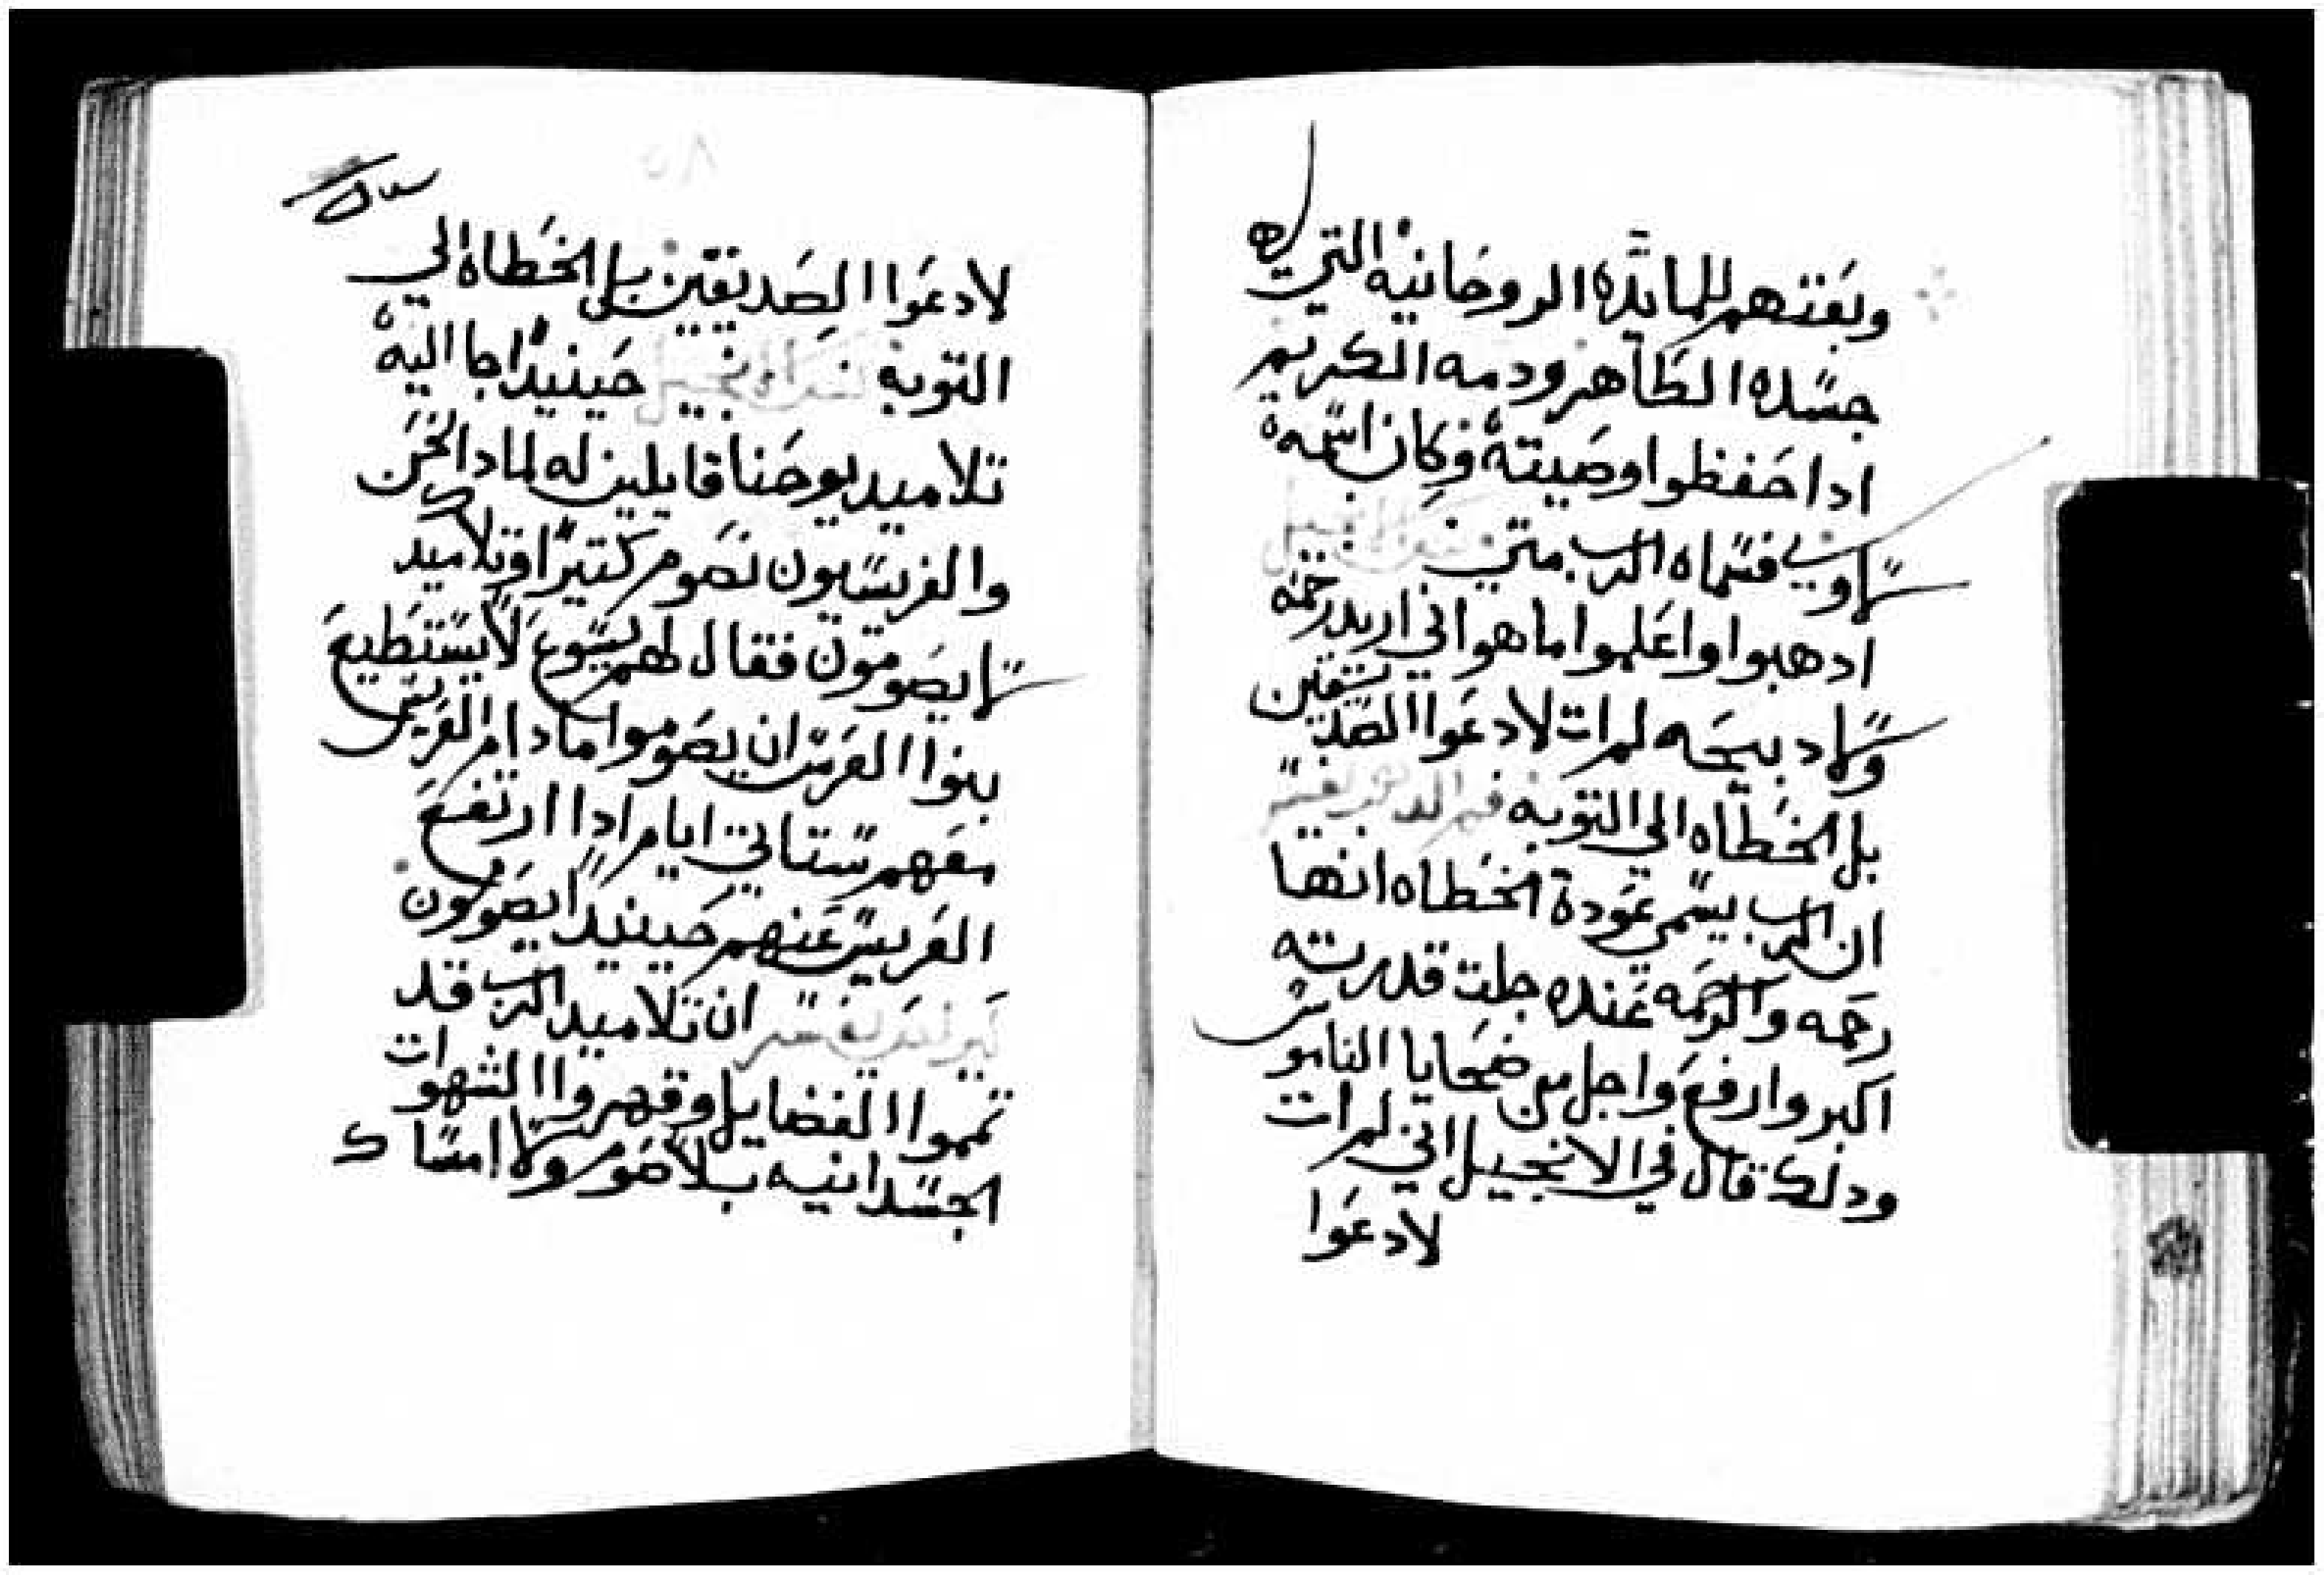 وبغتهم للمايده الروحانيه التي
جسده الطاهر ودمه الكريم
ادا حفظوا وصيته وكان اسمه
لاوي فسماه الرب متي نص الانجيل
ادهبوا واعلموا ما هو اني اريد رحمه
ولا دبيحه لم ات لادعوا الصديقين
بل الخطاه الي التوبه
ان الرب يسمي عودة الخطاه انها
رحمه والرحمه عنده جلت قدرته
اكبر وارفع واجل من ضحايا الناموس
ودلك قال في الانجيل اني لم ات
لادعوا
لادعوا الصديقين بل الخطاه الي
التوبه نص الانجيل حينيد اجا اليه
تلاميد يوحنا قايلين له لمادا نحن
والفريسيون نصوم كتيرا وتلاميدك
لا يصومون فقال لهم يسوع لا يستطيع
بنوا العرس ان يصوموا ما دام العريس
معهم ستاتي ايام ادا ارتفع
العريس عنهم حينيدا يصومون
ان تلاميد الرب قد
تمموا الفضايل وقهروا الشهوات
الجسدانيه بلا صوم ولا امساك